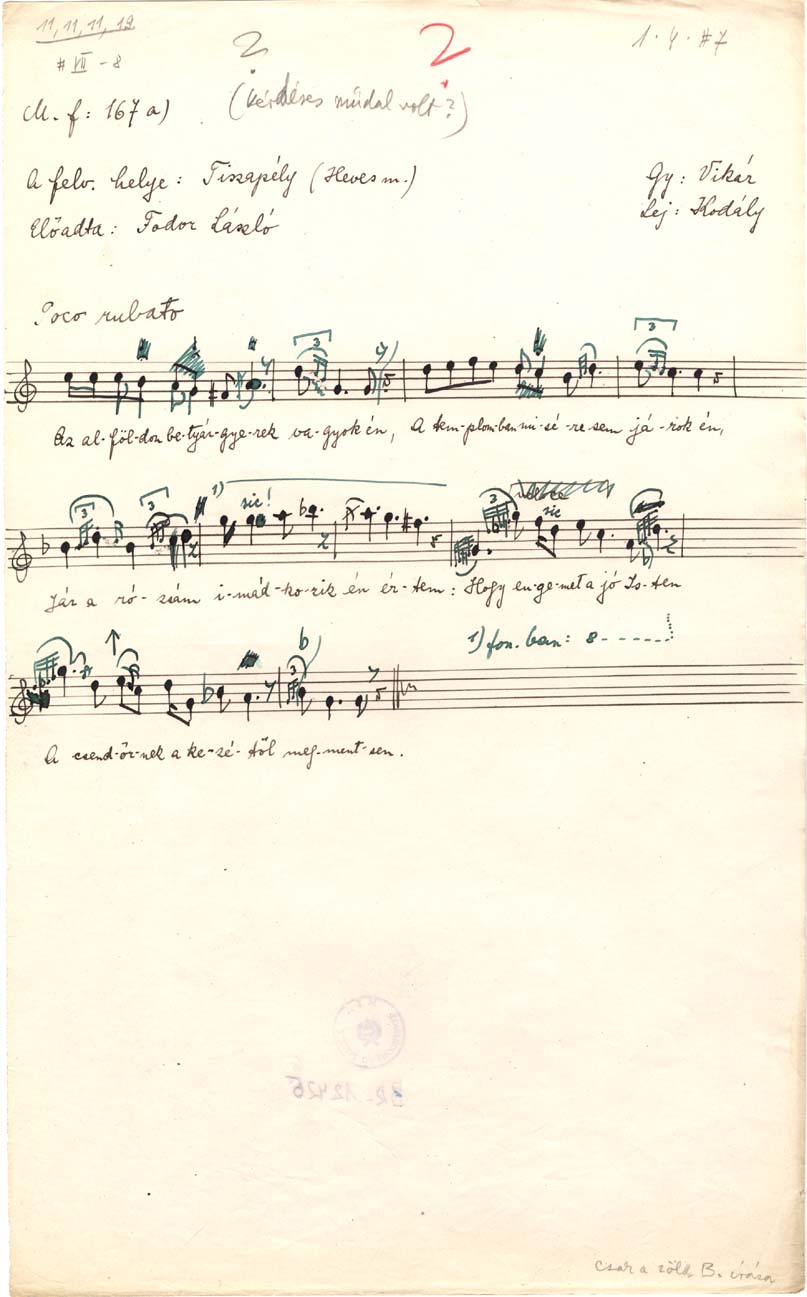 11, 11, 11, 19
# VII - 8
2
2
1. 4. #7
M. f: 167 a)
(kérdéses műdal volt?)
A felv. helye: Tiszapély (Heves m.)
Gy: Vikár
Előadta: Fodor László
Lej: Kodály
Poco rubato
3
3
Az al-föl-don be-tyár-gye-rek va-gyok én, A tem-plom-ban mi-sé-re sem já-rok én,
3
3
1)
sic!
3
sic
Jár a ró-zsám i-mád-ko-zik én ér-tem: Hogy en-ge-met a jó Is-ten
1) fon. ban: 8 - - - - -
3
A csend-őr-nek a ke-zé-től meg-ment-sen.
BR-12426
Csak a zöld B. írása